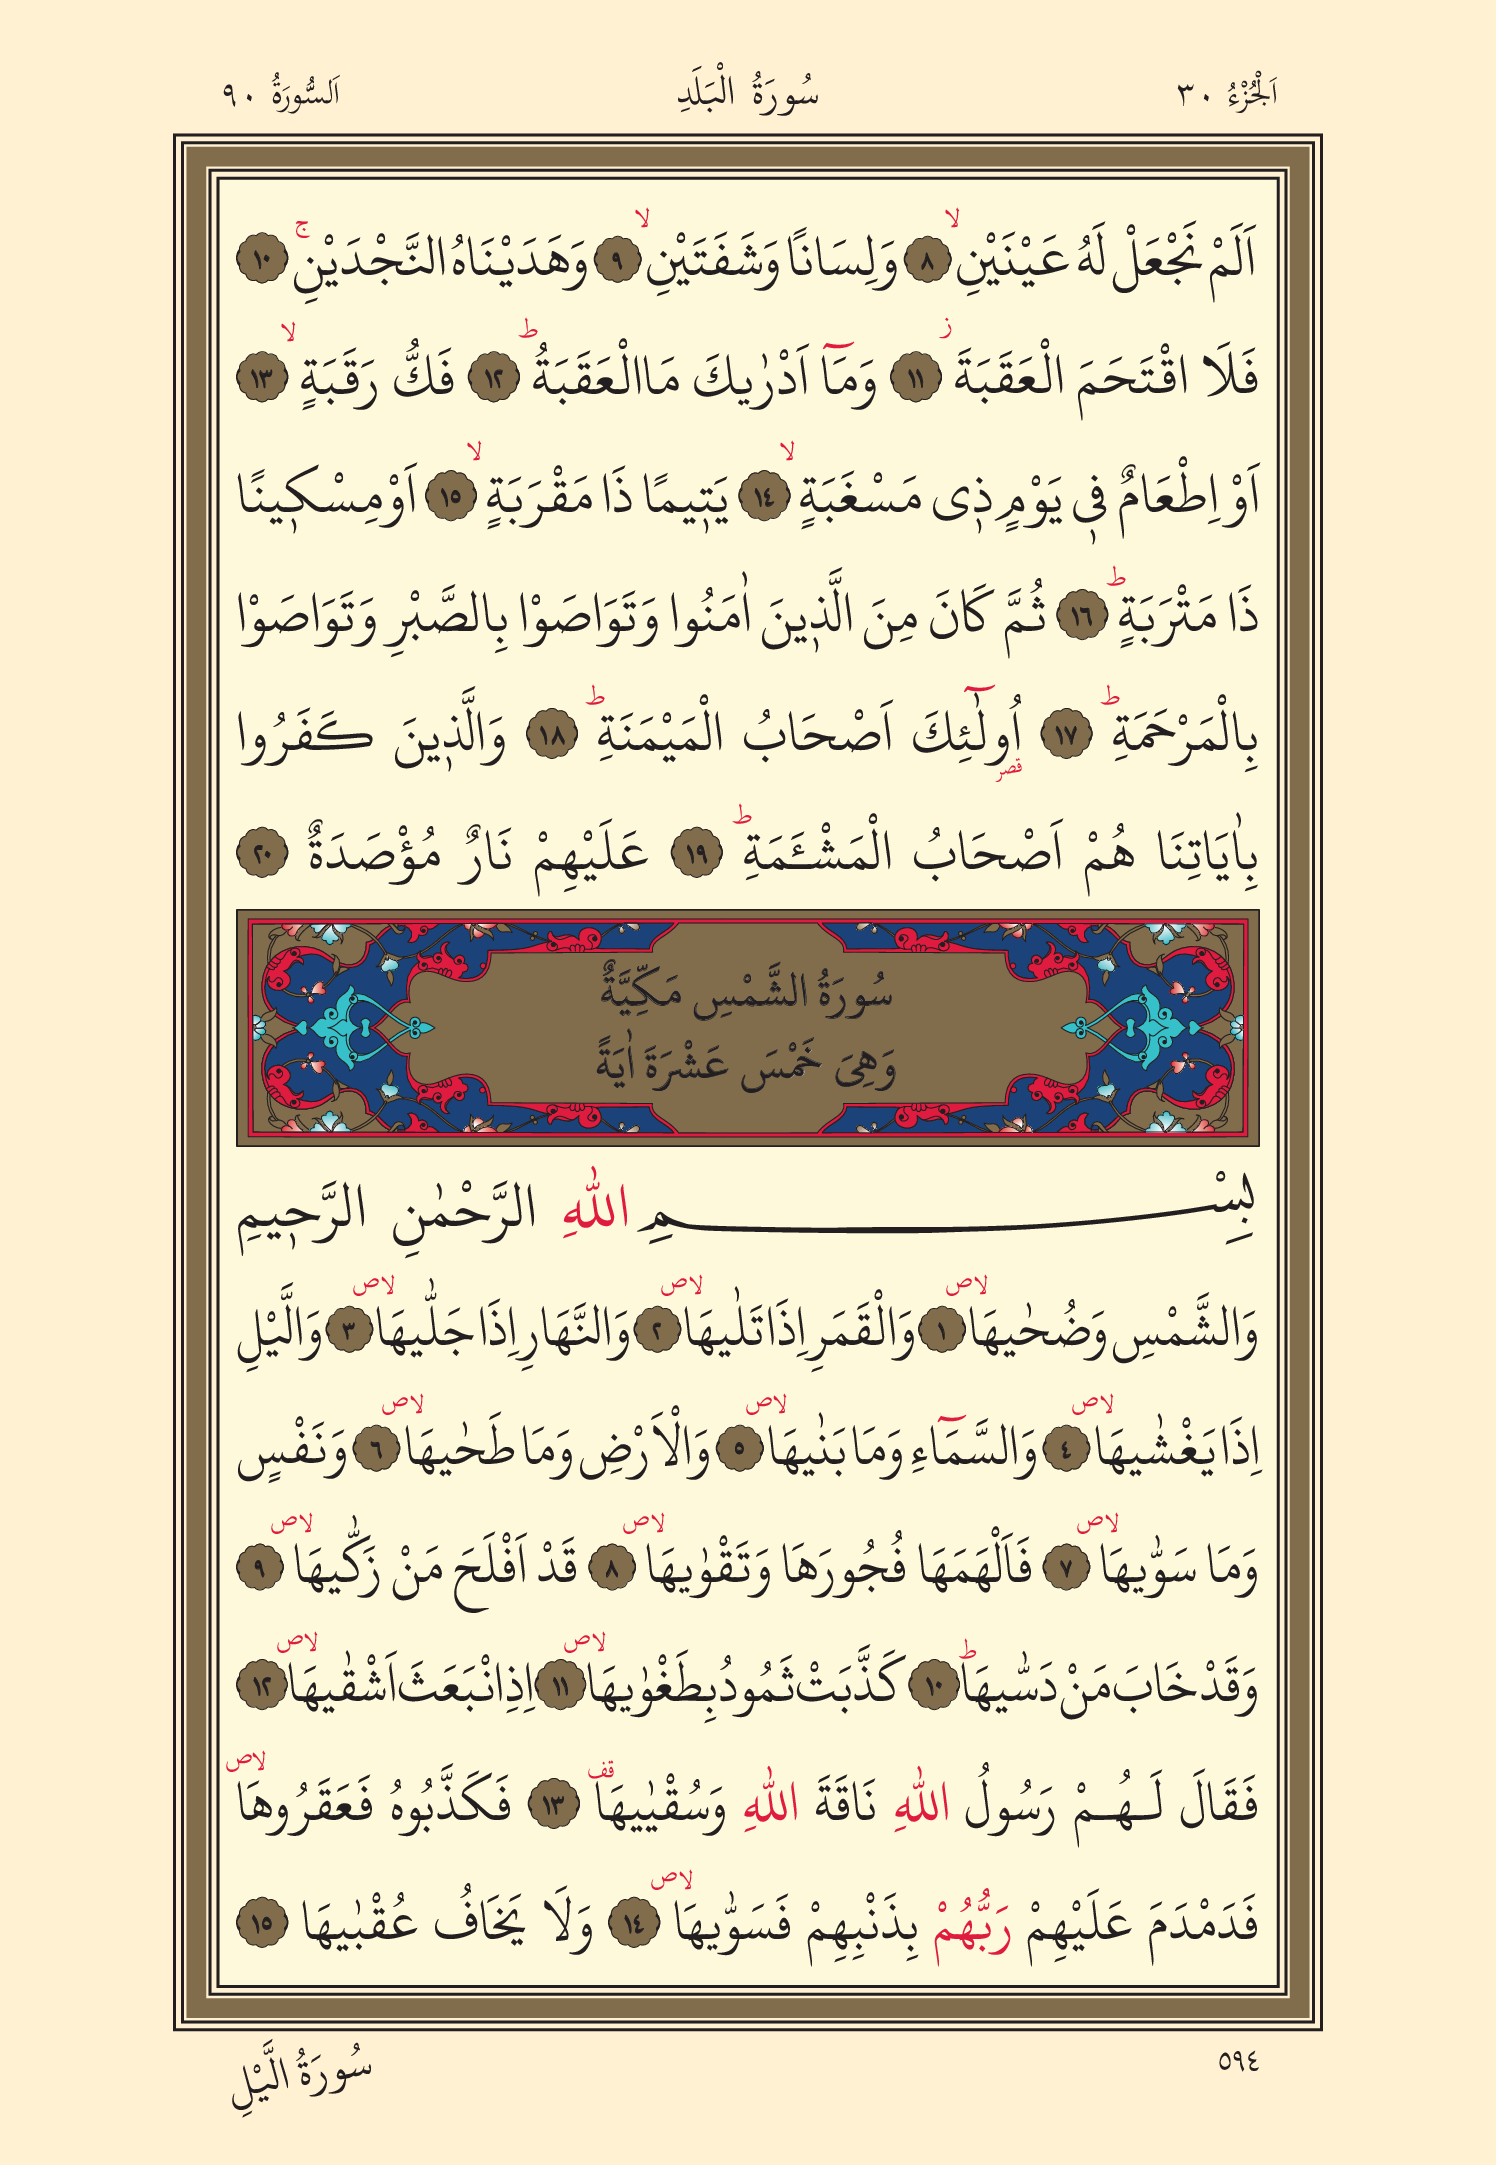 اَلْجُزْءُ ٣٠ سُورَةُ الْبَلَدِ اَلسُّورَةُ ٩٠
اَلَمْ نَجْعَلْ لَهُ عَيْنَيْنِۙ ٨ وَلِسَانًا وَشَفَتَيْنِۙ ٩ وَهَدَيْنَاهُ النَّجْدَيْنِۚ ١٠
فَلَا اقْتَحَمَ الْعَقَبَةَۘ ز ١١ وَمَٓا اَدْرٰيكَ مَاالْعَقَبَةُۜ ط ١٢ فَكُّ رَقَبَةٍۙ ١٣
اَوْ اِطْعَامٌ ف۪ي يَوْمٍ ذ۪ي مَسْغَبَةٍۙ ١٤ يَت۪يمًا ذَا مَقْرَبَةٍۙ ١٥ اَوْ مِسْك۪ينًا
ذَا مَتْرَبَةٍۜ ط ١٦ ثُمَّ كَانَ مِنَ الَّذ۪ينَ اٰمَنُوا وَتَوَاصَوْا بِالصَّبْرِ وَتَوَاصَوْا
بِالْمَرْحَمَةِ ط ١٧ اُولٰٓئِكَ قصر اَصْحَابُ الْمَيْمَنَةِ ط ١٨ وَالَّذ۪ينَ كَفَرُوا
بِاٰيَاتِنَا هُمْ اَصْحَابُ الْمَشْـَٔمَةِ ط ١٩ عَلَيْهِمْ نَارٌ مُؤْصَدَةٌ ٢٠
سُورَةُ الشَّمْسِ مَكِّيَّةٌ
وَهِيَ خَمْسَ عَشْرَةَ اٰيَةً
بِسْمِ اللّٰهِ الرَّحْمٰنِ الرَّح۪يمِ
وَالشَّمْسِ وَضُحٰيهَا لاص ١ وَالْقَمَرِ اِذَا تَلٰيهَا لاص ٢ وَالنَّهَارِ اِذَا جَلّٰيهَا لاص ٣ وَالَّيْلِ
اِذَا يَغْشٰيهَا لاص ٤ وَالسَّمَٓاءِ وَمَا بَنٰيهَا لاص ٥ وَالْاَرْضِ وَمَا طَحٰيهَا لاص ٦ وَنَفْسٍ
وَمَا سَوّٰيهَا لاص ٧ فَاَلْهَمَهَا فُجُورَهَا وَتَقْوٰيهَا لاص ٨ قَدْ اَفْلَحَ مَنْ زَكّٰيهَا لاص ٩
وَقَدْ خَابَ مَنْ دَسّٰيهَا ط ١٠ كَذَّبَتْ ثَمُودُ بِطَغْوٰيهَا لاص ١١ اِذِ انْبَعَثَ اَشْقٰيهَا لاص ١٢
فَقَالَ لَهُمْ رَسُولُ اللّٰهِ نَاقَةَ اللّٰهِ وَسُقْيٰيهَا قف ١٣ فَكَذَّبُوهُ فَعَقَرُوهَا لاص
فَدَمْدَمَ عَلَيْهِمْ رَبُّهُمْ بِذَنْبِهِمْ فَسَوّٰيهَا لاص ١٤ وَلَا يَخَافُ عُقْبٰيهَا ١٥
٥٩٤ سُورَةُ الَّيْلِ